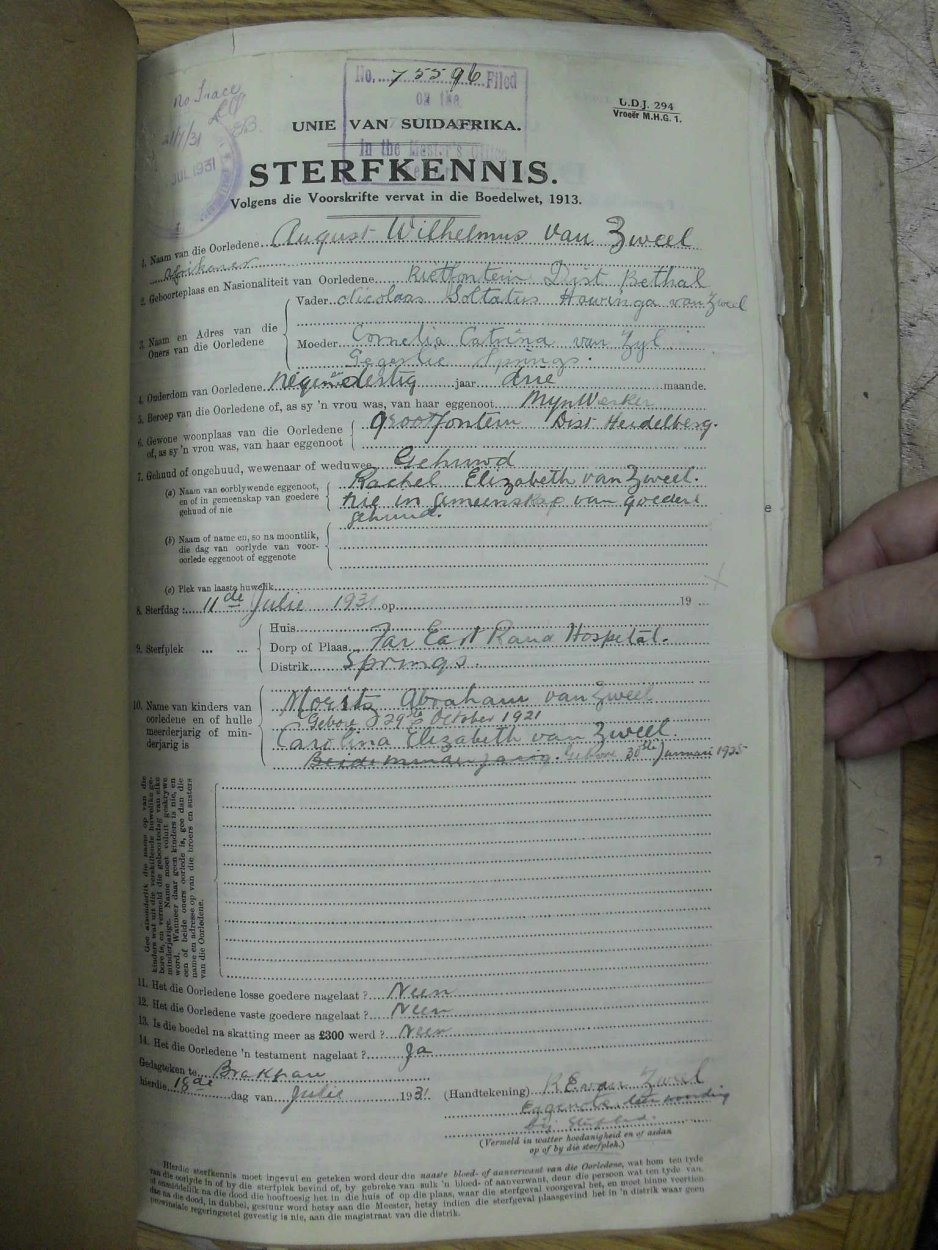 No. 75596 Filed
on the
In the Master's Office
no Trace
21/7/31
JUL 1931
U.D.J. 294
Vroeër M.H.G. 1.
UNIE VAN SUIDAFRIKA.
STERFKENNIS.
Volgens die Voorskrifte vervat in die Boedelwet, 1913.
1. Naam van die Oorledene August Wilhelmus van Zweel
Afrikaner
2. Geboorteplaas en Nasionaliteit van Oorledene Rietfontein Dist Bethal
3. Naam en Adres van die Ouers van die Oorledene
Vader Nicolaas Soltatus Howinga van Zweel
Moeder Cornelia Catrina van Zyl
Springs.
4. Ouderdom van Oorledene Negen en dertig jaar drie maande.
5. Beroep van die Oorledene of, as sy 'n vrou was, van haar eggenoot MynWerker
6. Gewone woonplaas van die Oorledene of, as sy 'n vrou was, van haar eggenoot
Grootfontein Dist Heidelberg.
7. Gehuud of ongehuud, wewenaar of weduwee Gehuwd
(a) Naam van oorblywende eggenoot, en of in gemeenskap van goedere gehuud of nie
Rachel Elizabeth van Zweel.
nie in gemeenskap van goedere
gehuud.
(b) Naam of name en, so na moontlik, die dag van oorlyde van vooroorlede eggenoot of eggenote
(c) Plek van laaste huwelik
8. Sterfdag : 11de Julie 1931 op 19
9. Sterfplek ... ...
Huis
Dorp of Plaas Far East Rand Hospital.
Distrik Springs.
10. Name van kinders van oorledene en of hulle meerderjarig of minderjarig is
Moritz Abraham van Zweel
Gebore 29 October 1921
Carolina Elizabeth van Zweel.
Beide minderjarig. Gebore 30th Januari 1925
Gee afsonderlik die name op van die kinders wat uit die verskillende huwelike gebore is, en vermeld die geboortedag van elke minderjarige. Name moet voluit geskrywe word. Wanneer daar geen kinders is nie, en een of beide ouers oorlede is, gee dan die name en adresse op van die broers en susters van die Oorledene.
11. Het die Oorledene losse goedere nagelaat ? Neen
12. Het die Oorledene vaste goedere nagelaat ? Neen
13. Is die boedel na skatting meer as £300 werd ? Neen
14. Het die Oorledene 'n testament nagelaat ? Ja
Gedagteken te Brakpan
hierdie 18de dag van Julie 1931.
(Handtekening) R E van Zweel
Eggenote teenwoordig
by sterfbed.
(Vermeld in watter hoedanigheid en of asdan op of by die sterfplek.)
Hierdie sterfkennis moet ingevul en geteken word deur die naaste bloed- of aanverwant van die Oorledene, wat hom ten tyde
van die oorlyde in of by die sterfplek bevind of, by gebreke van sulk 'n bloed- of aanverwant, deur die persoon wat ten tyde van
of onmiddelik na die dood die hooftoesig het in die huis of op die plaas, waar die sterfgeval voorgeval het, en moet binne veertien
dae na die dood, in dubbel, gestuur word hetsy aan die Meester, hetsy indien die sterfgeval plaasgevind het in 'n distrik waar geen
provinsiale regeringsetel gevestig is nie, aan die magistraat van die distrik.